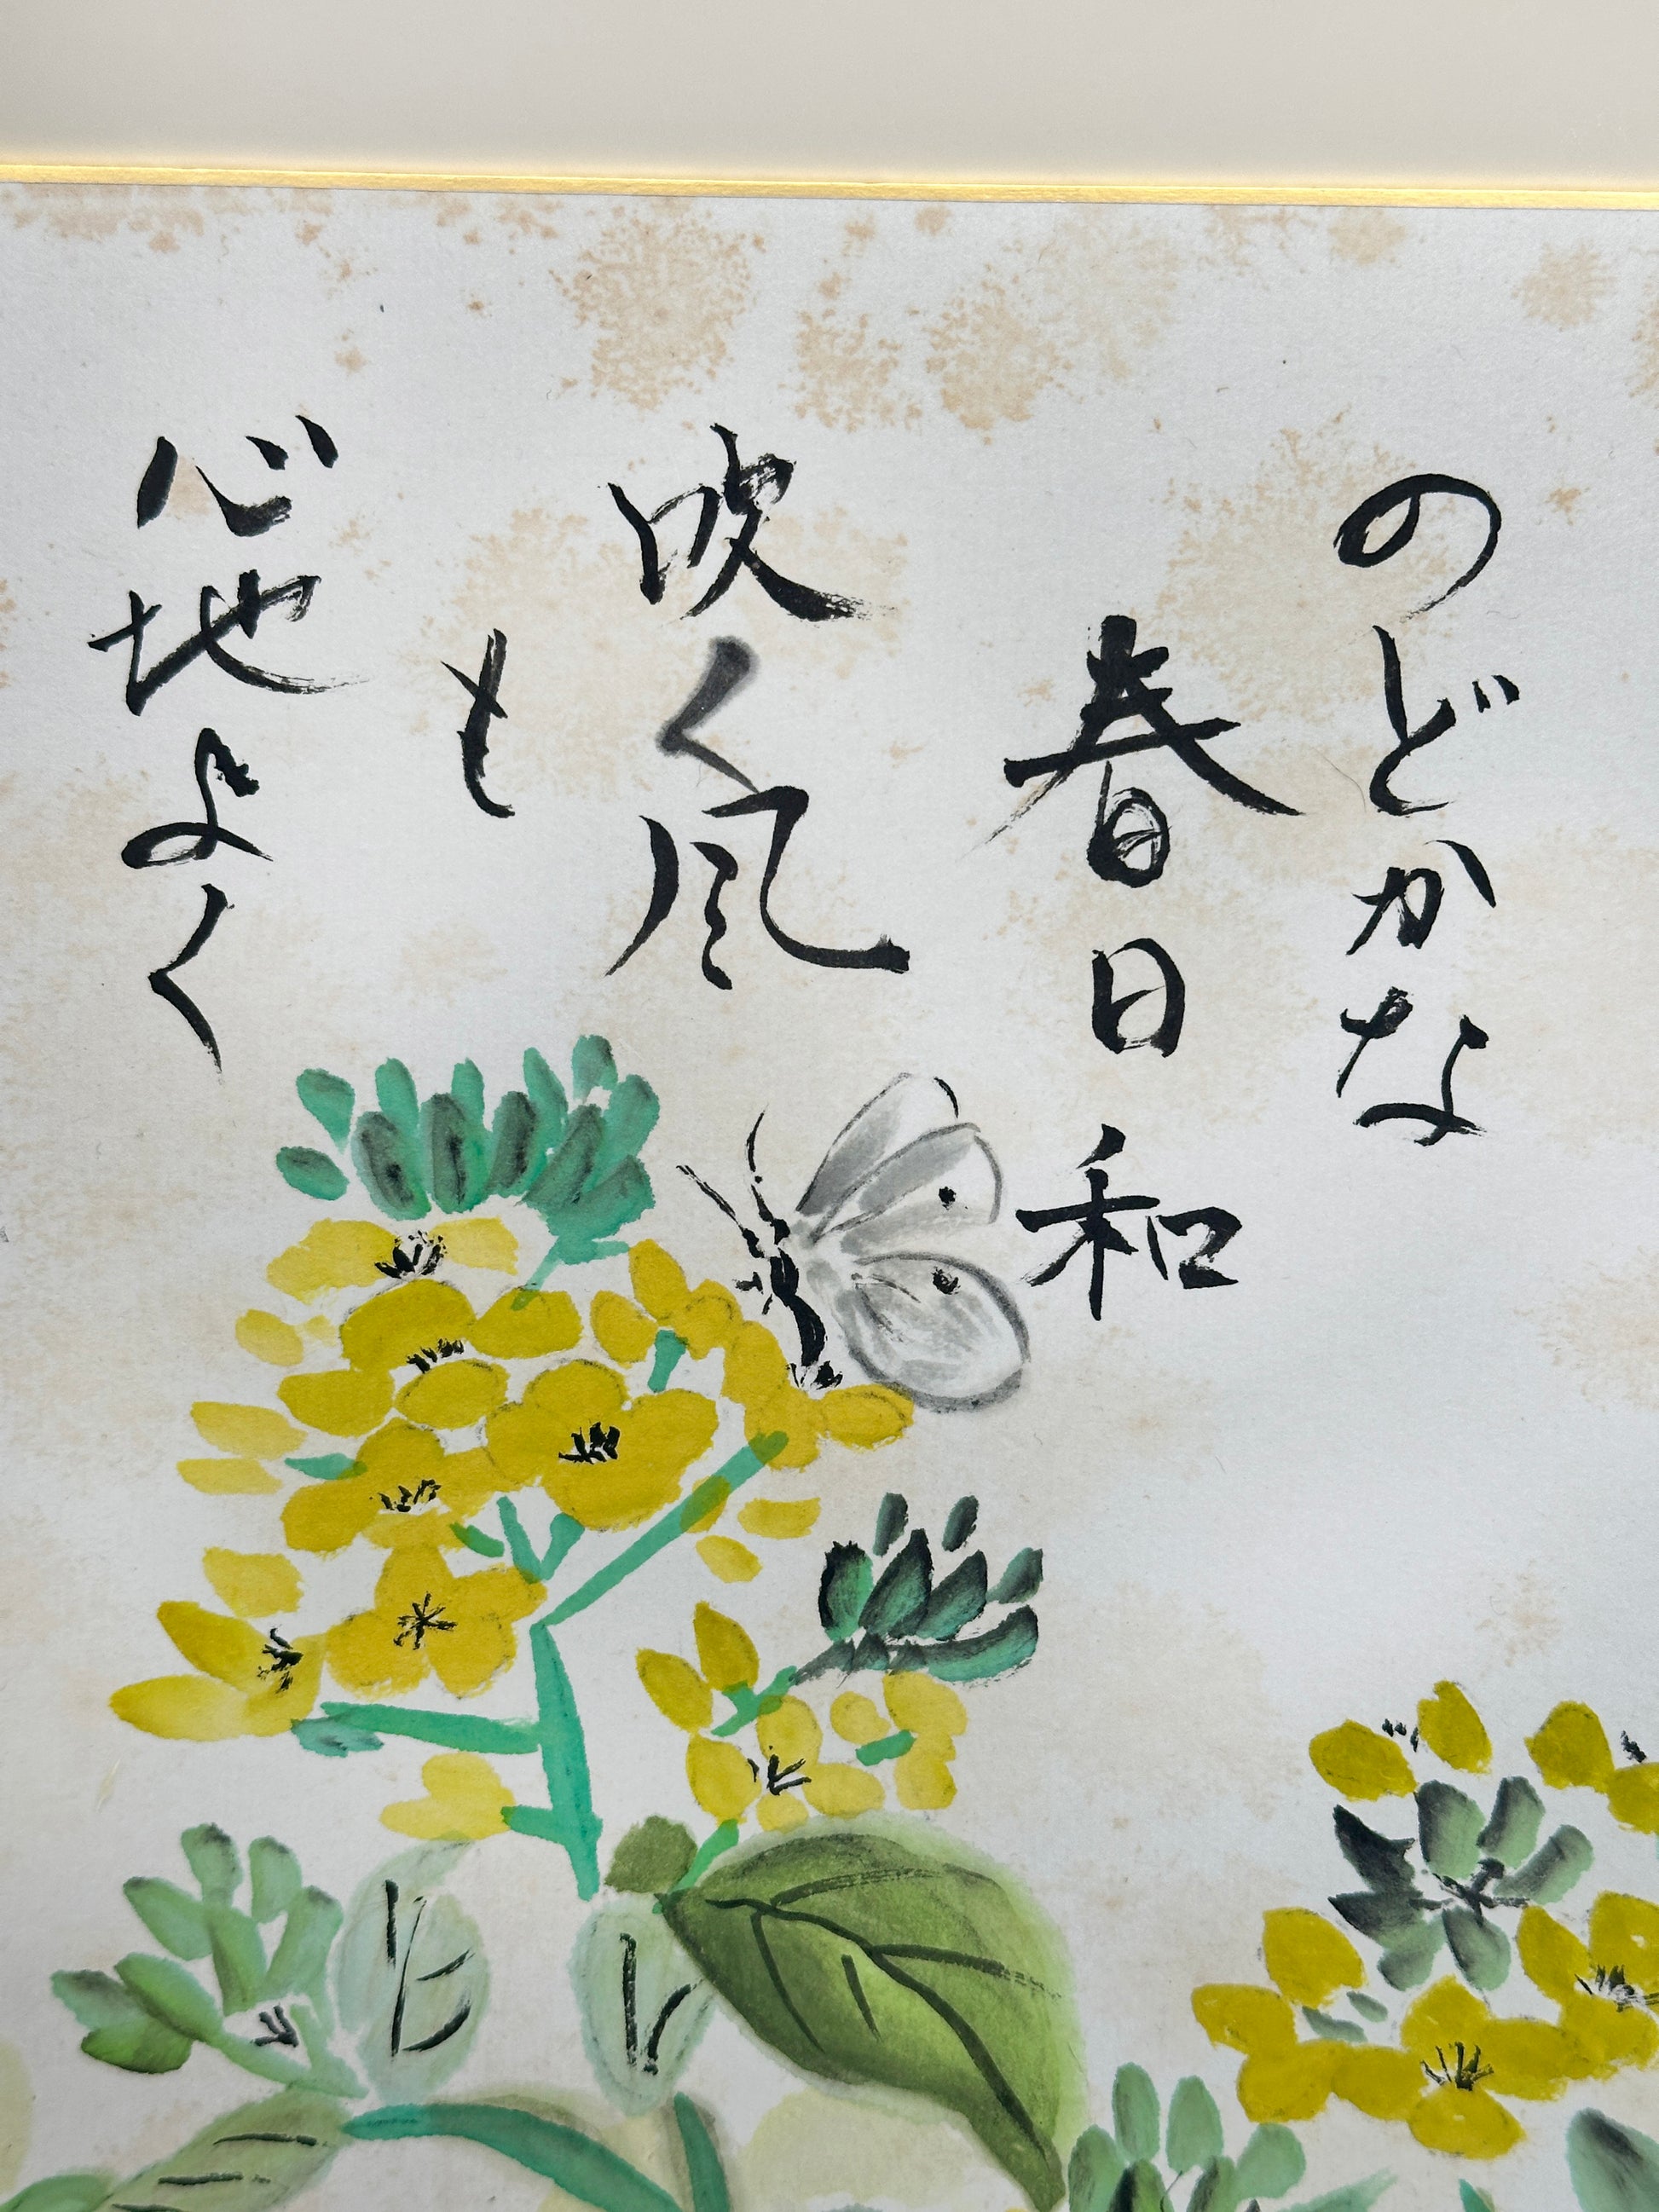 のどかな
春日和
吹く風
も
心地よく